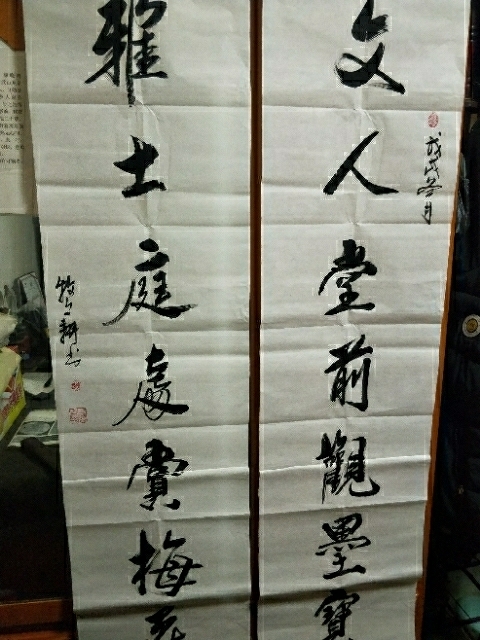 文人堂前觀墨寶
戊戌冬月
雅士庭處賞梅
耕书